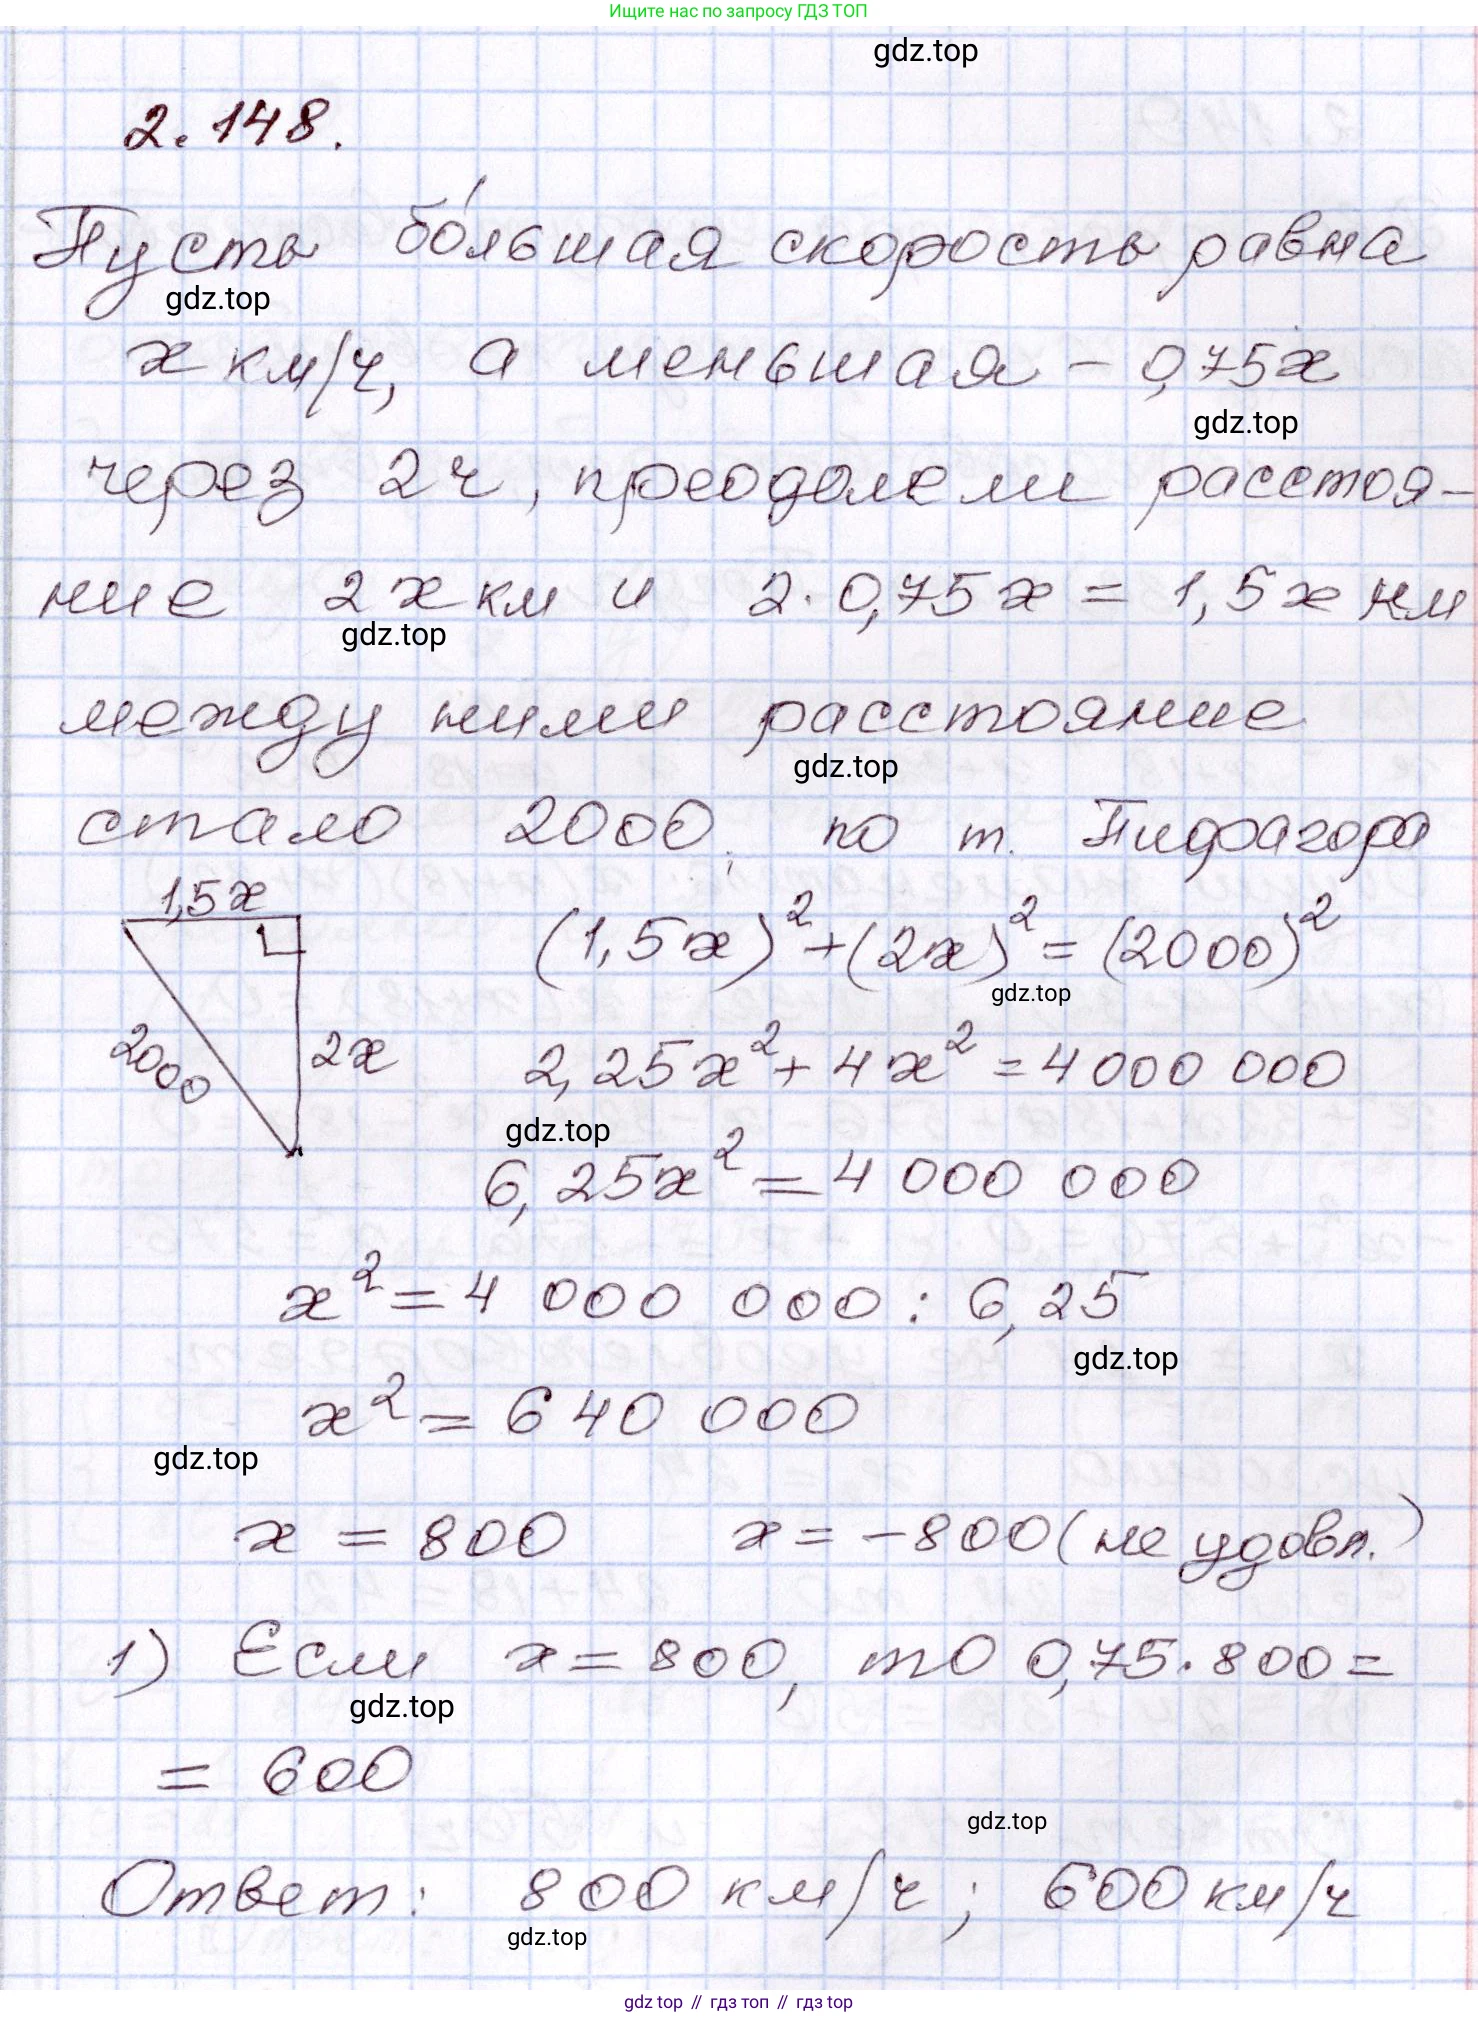 Ищите нас по запросу ГДЗ ТОП
gdz.top
2.148.
Пусть бо́льшая скорость равна
gdz.top
x км/ч, а меньшая – 0,75x
gdz.top
через 2 ч, преодолели расстоя-
ние 2x км и 2·0,75x = 1,5x км
gdz.top
между ними расстояние
gdz.top
стало 2000. по т. Пифагора
1,5x
(1,5x)² + (2x)² = (2000)²
gdz.top
2000
2x
2,25x² + 4x² = 4 000 000
gdz.top
6,25x² = 4 000 000
x² = 4 000 000 : 6,25
gdz.top
x² = 640 000
gdz.top
x = 800 x = -800 (не удовл.)
1) Если x = 800, то 0,75·800 =
gdz.top
= 600
gdz.top
Ответ: 800 км/ч ; 600 км/ч
gdz.top
gdz top // гдз топ // gdz top